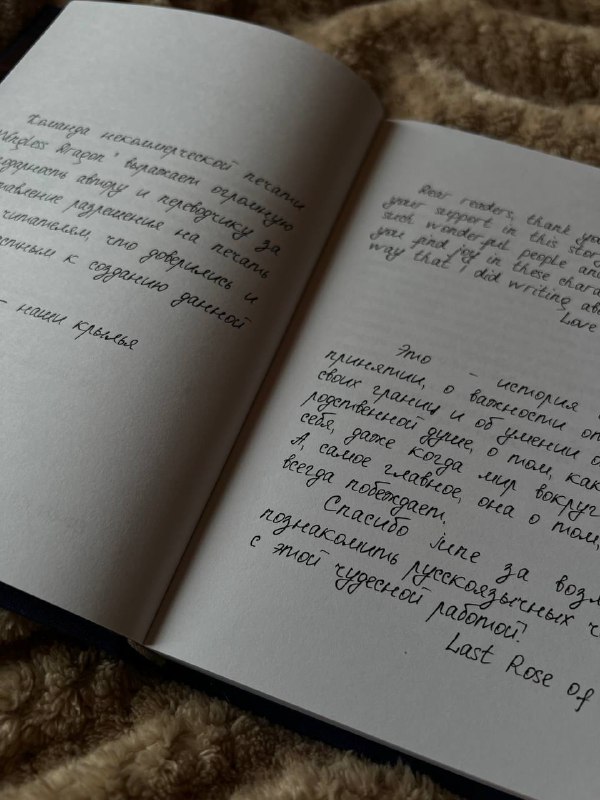 Команда некоммерческой печати
Wingless Dragon" выражает огромную
автору и переводчику за
разрешения на печать
читателям, что доверились и
к созданию данной
– наши крылья
Dear readers, thank you
your support in this
such wonderful people and
you find joy in these
way that I did writing
Love
Это – история
принятии, о важности
своих границ и об умении
родственной душе, о том, как
себя, даже когда мир вокруг
А, самое главное, она о том,
всегда побеждает.
Спасибо june за
познакомить русскоязычных
с этой чудесной работой!
Last Rose of